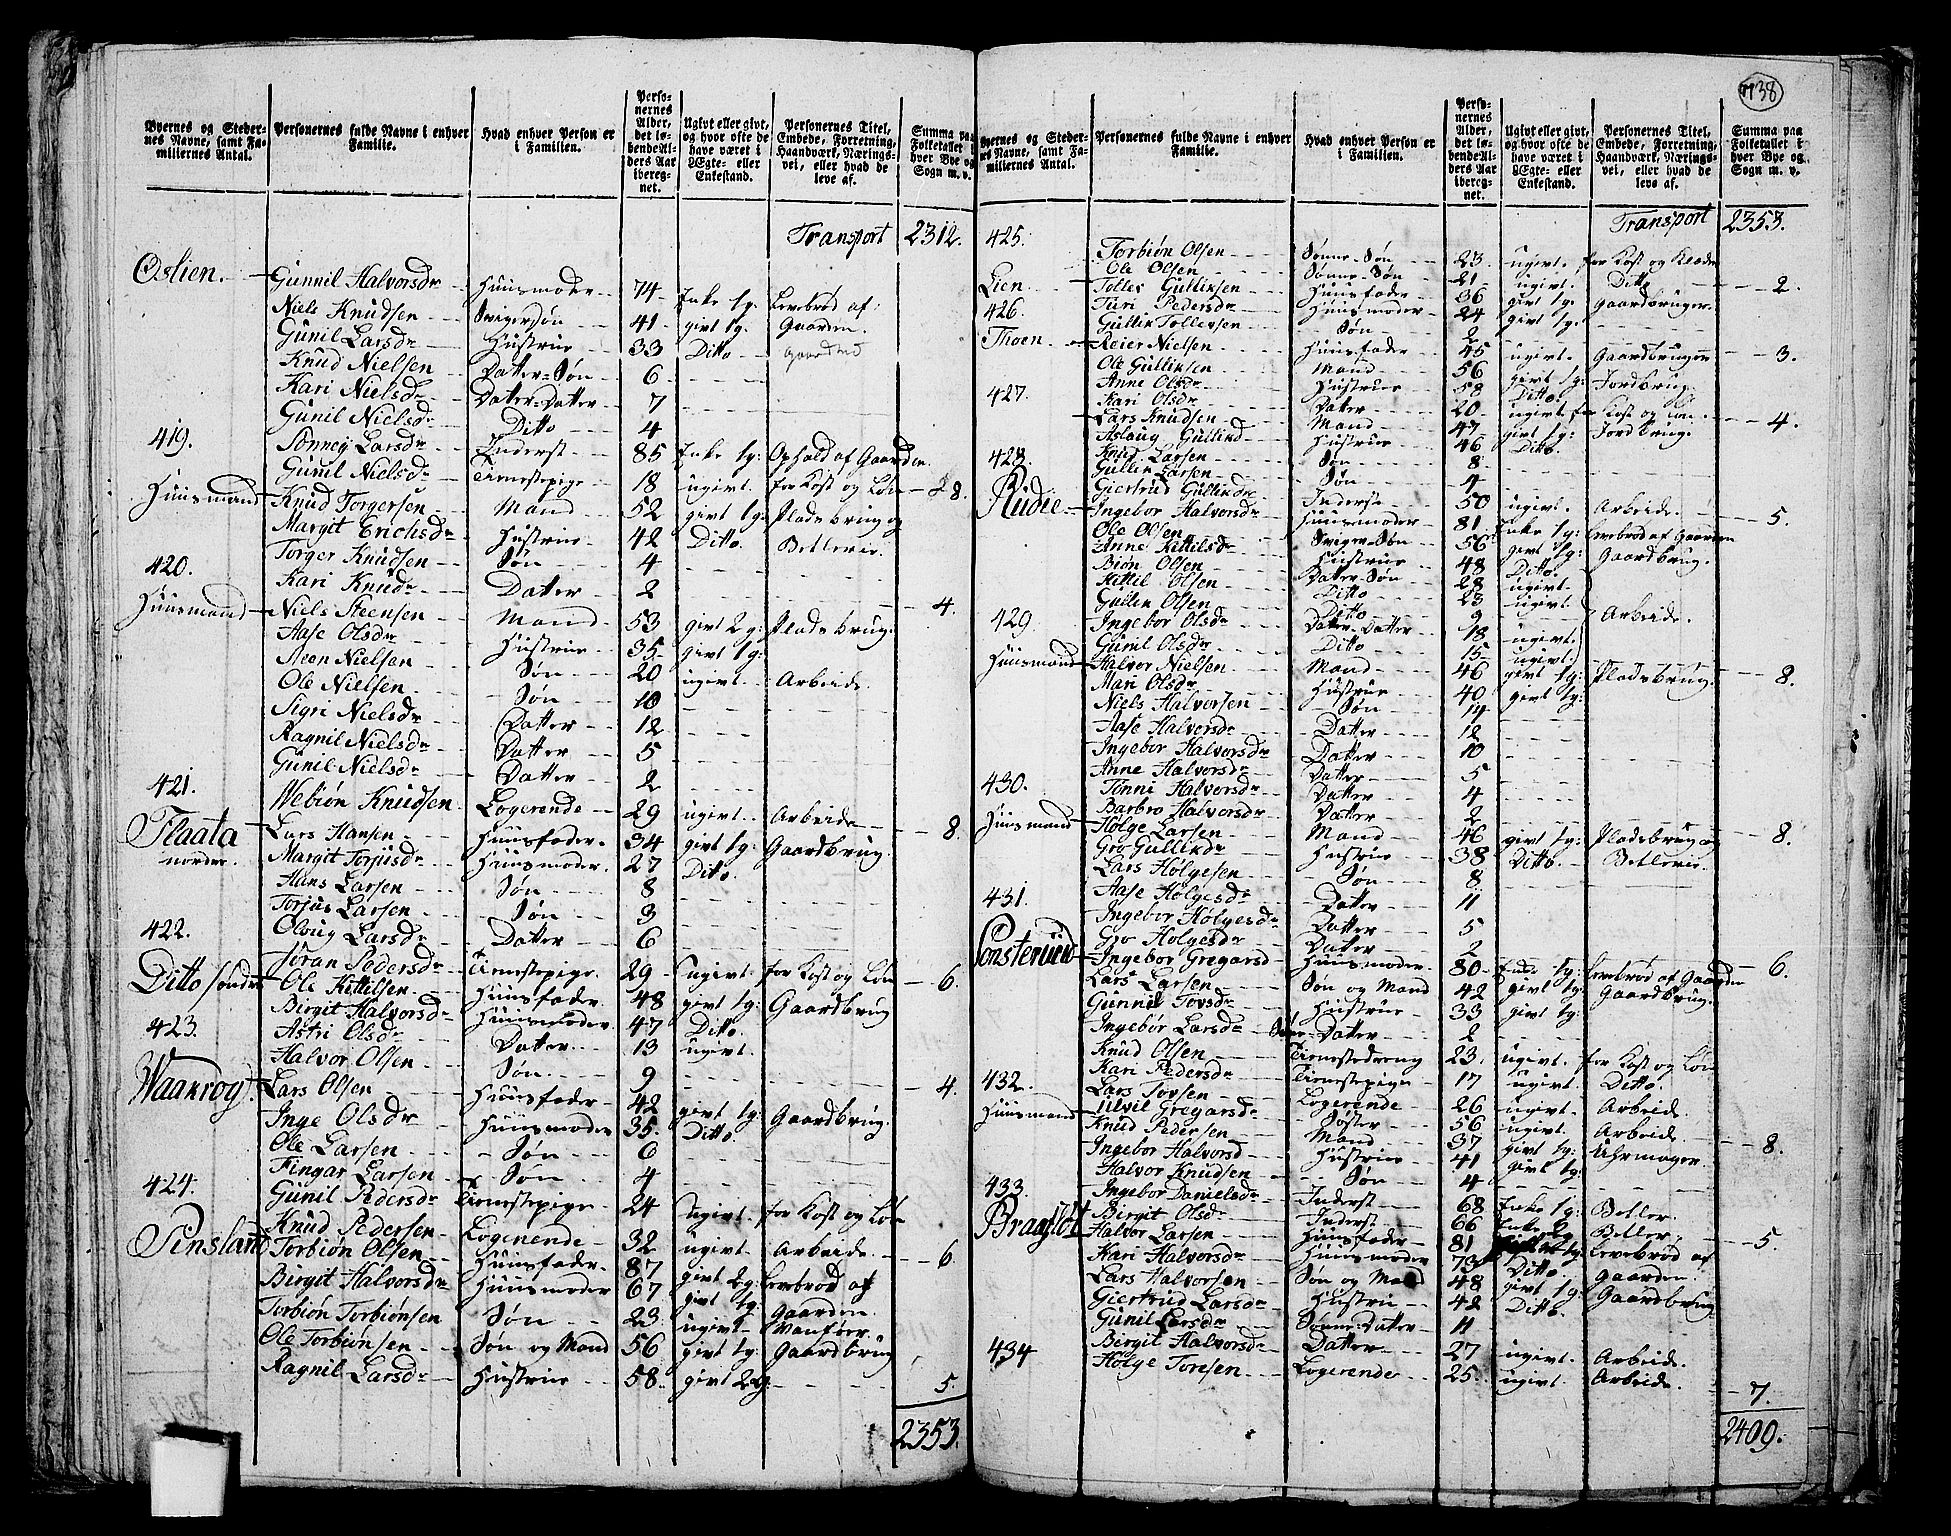 738
Byernes og Steder-
nes Navne, samt Fa-
miliernes Antal.
Personernes fulde Navne i enhver
Familie.
Hvad enhver Person er
i Familien.
Perso-
nernes
Alder,
det lø-
bende Al-
ders Aar
ibereg-
net.
Ugivt eller givt,
og hvor ofte de
have været i
Ægte- eller
Enkestand.
Personernes Titel,
Embede, Forretning,
Haandværk, Nærings-
vei, eller hvad de
leve af.
Summa paa
Folketallet i
hver Bye og
Sogn m. v.
Transport 2312.
Oslien. Gunnil Halvorsdr Huusmoder 74 Enke 1g: Levebrød af
Niels Knudsen Svigersøn 41 givt 1g: Gaarden.
Gunil Larsdr Hustrue 33 Ditto
Knud Nielsen Datter-Søn 6
Kari Nielsdr Datter-Datter 7
Gunil Nielsdr Ditto 4
419. Sonney Larsdr Inderst 85 Enke 1g: Ophold af Gaarden
Gunil Nielsdr Tienestepige 18 ugivt. for Kost og Løn 8.
Huusmand Knud Torgersen Mand 52 givt 1g: Pladsbrug og
Margit Erichsdr Hustrue 42 Ditto. Betlerie.
Torger Knudsen Søn 4
420. Kari Knudr Datter 2 4.
Huusmand Niels Steensen Mand 53 givt 2g: Pladsbrug.
Aase Olsdr Hustrue 35 givt 1g:
Steen Nielsen Søn 20 ugivt. Arbeide.
Ole Nielsen Søn 10
Sigri Nielsdr Datter 12
Ragnil Nielsdr Datter 5
Gunil Nielsdr Datter 2
421. Webiøn Knudsen Logerende 29 ugivt. Arbeide 8.
Flaata Lars Hansen Huusfader 34 givt 1g: Gaardbrug.
nordre. Margit Torjusdr Huusmoder 27 Ditto.
Hans Larsen Søn 8
Torjus Larsen Søn 3
422. Oloug Larsdr Datter 6
Jøran Pedersdr Tienestepige 29 ugivt. for Kost og Løn 6.
Ditto søndre Ole Kittilsen Huusfader 48 givt 1g: Gaardbrug
Birgit Halvorsdr Huusmoder 47 Ditto.
423. Astri Olsdr Datter 13 ugivt.
Halvor Olsen Søn 9 4.
Waanrog Lars Olsen Huusfader 42 givt 1g: Gaardbrug.
Inge Olsdr Huusmoder 35 Ditto.
Ole Larsen Søn 6
Fingar Larsen Søn 4
424. Gunil Pedersdr Tienestepige 24 ugivt. for Kost og Løn
Knud Pedersen Logerende 32 ugivt. Arbeide. 6.
Sinsland Torbiøn Olsen Huusfader 87 givt 2g: Levebrød af
Birgit Halvorsdr Huusmoder 67 givt 1g: Gaarden
Torbiøn Torbiønsen Søn 23 ugivt. Vanføer.
Ole Torbiønsen Søn og Mand 56 givt 1g: Gaardbrug
Ragnil Larsdr Hustrue 58 givt 2g: 5.
2353.
Byernes og Steder-
nes Navne, samt Fa-
miliernes Antal.
Personernes fulde Navne i enhver
Familie.
Hvad enhver Person er
i Familien.
Perso-
nernes
Alder,
det lø-
bende Al-
ders Aar
ibereg-
net.
Ugivt eller givt,
og hvor ofte de
have været i
Ægte- eller
Enkestand.
Personernes Titel,
Embede, Forretning,
Haandværk, Nærings-
vei, eller hvad de
leve af.
Summa paa
Folketallet i
hver Bye og
Sogn m. v.
Transport 2353.
425. Torbiøn Olsen Sønne-Søn 23 ugivt. for Kost og Klæder
Ole Olsen Sønne-Søn 21 ugivt. Ditto 2.
Lien Tollef Gulliksen Huusfader 36 givt 1g: Gaardbruger
426. Turi Pedersdr Huusmoder 24 givt 1g.
Gullik Tollevsen Søn 2 3.
Thoen Reier Nielsen Huusfader 45 ugivt. Gaardbruger
Ole Gulliksen Mand 56 givt 1g: Jordbrug.
Anne Olsdr Hustrue 58 Ditto.
427. Kari Olsdr Datter 20 ugivt for Kost og Løn. 4.
Lars Knudsen Mand 47 givt 1g: Jordbrug.
Aslaug Gullikd Hustrue 46 Ditto.
Knud Larsen Søn 8
428. Gullik Larsen Søn 4
Giertrud Gullikdr Inderste 50 ugivt. Arbeide 5.
Rudie Ingebor Halvorsdr Huusmoder 81 Enke 1g: Levebrød af Gaarden
Ole Olsen Sviger-Søn 56 givt 1g: Gaardbrug.
Anne Kittilsdr Hustrue 48 Ditto.
Biøn Olsen Datter-Søn 28 ugivt.
Kittil Olsen Ditto 23 ugivt Arbeide.
Gullik Olsen Ditto 9
429. Ingebor Olsdr Datter-Datter 18 ugivt.
Gunil Olsdr Ditto 15 ugivt. 8.
Huusmand Halvor Nielsen Mand 46 givt 1g: Pladsbrug.
Mari Olsdr Hustrue 40 givt 1g:
Niels Halvorsen Søn 14
Aase Halvorsdr Datter 12
Ingebor Halvorsdr Datter 10
Anne Halvorsdr Datter 5
430. Tønni Halvorsdr Datter 4
Barbro Halvorsdr Datter 2 8.
Huusmand Holge Larsen Mand 46 givt 1g: Pladsbrug og
Gro Gullikdr Hustrue 38 Ditto Betlerie.
Lars Holgesen Søn 8
431. Aase Holgesdr Datter 11
Ingebor Holgesdr Datter 5
Gro Holgesdr Datter 2 6.
Sønsteruud Ingebor Gregarsd Huusmoder 80 Enke 1g: Levebrød af Gaarden
Lars Larsen Søn og Mand 42 givt 1g: Gaardbrug.
Gunnil Tovsdr Hustrue 33 givt 1g:
Ingebør Larsdr Datter 2
Knud Olsen Tienestedreng 23 ugivt. for Kost og Løn
Kari Pedersdr Tienestepige 17 ugivt. Ditto.
432. Lars Tovsen Logerende 26 ugivt. Arbeide.
Gregarsdr Søster 56 ugivt. Arbeide. 8.
Huusmand Knud Pedersen Mand 37 givt 1g: Uhrmager.
Ingebor Halvorsd Hustrue 41 givt 1g:
Halvor Knudsen Søn 4
433. Ingebor Danielsdr Inderst 68 Enke 1g: Betler
Birgit Olsdr Inderst 66 Enke Betler 5.
Bragslet Halvor Larsen Huusfader 81 1g: Levebrød af
Kari Halvorsdr Huusmoder 73 Ditto. Gaarden.
Lars Halvorsen Søn og Mand 48 givt 1g: Gaardbrug
Giertrud Larsdr Hustrue 42 Ditto.
Gunil Larsdr Sønne-Datter 11
434 Birgit Halvorsdr Datter 27 ugivt. Arbeide.
Holge Toresen Logerende 25 ugivt. Arbeide. 7.
2409.